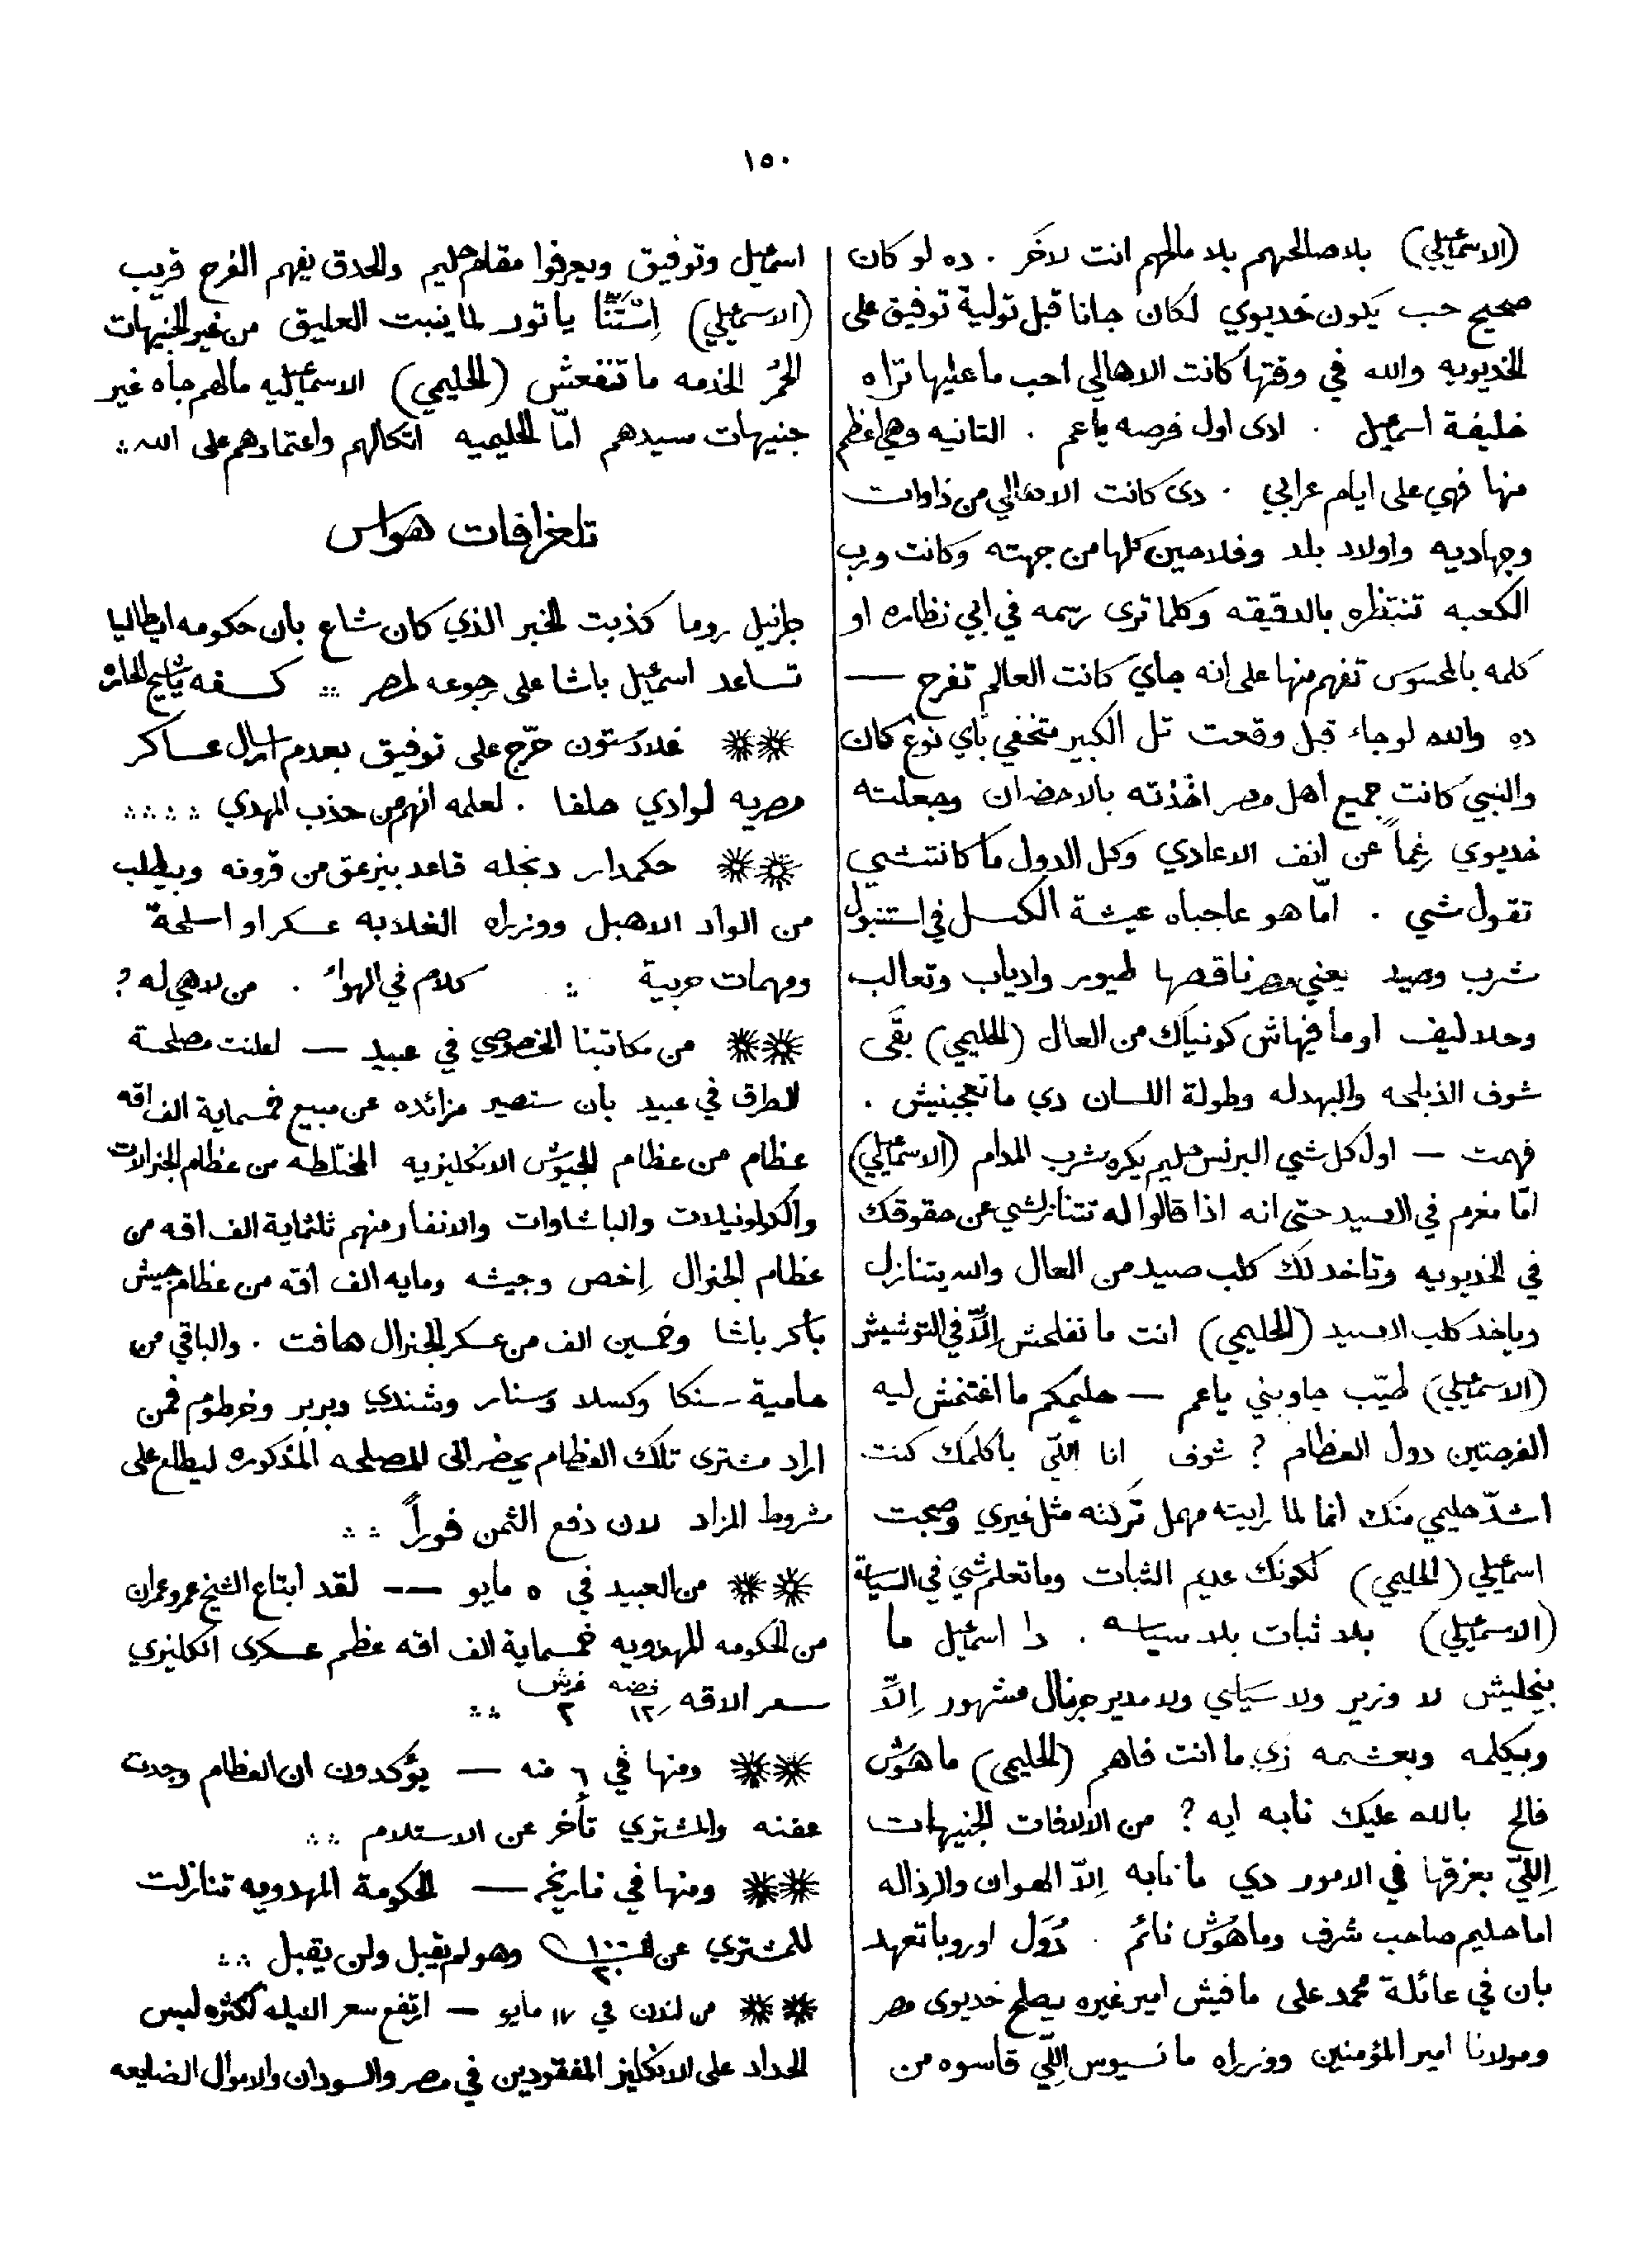 ١٥٠
(الاسمعيلي) بلا صالحهم بلا مالحهم انت لاخر . ده لو كان
صحيح حب يكون خديوي لكان جانا قبل تولية توفيق على
الخديويه والله في وقتها كانت الاهالي احب ما عليها تراه
خليفة اسمعيل . ادى اول فرصه يا عم . التانيه وهي اعظم
منها فهي على ايام عرابي . دى كانت الاهالي من ذاوات
وجهاديه واولاد بلد وفلاحين كلها من جهته وكانت ورب
الكعبه تنتظره بالدقيقه وكلما ترى رسمه في ابي نظاره او
كلمه بالمحسوس تفهم منها على انه جاي كانت العالم تفرح —
ده والله لو جاء قبل وقعت تل الكبير متخفي باي نوع كان
والنبي كانت جميع اهل مصر اخذته بالاحضان وجعلته
خديوي رغماً عن انف الاعادي وكل الدول ما كانتشي
تقول شي . امّا هو عاجباه عيشة الكسل في استنبول
شرب وصيد يعني مصر ناقصها طيور وادياب وتعالب
وحلاليف او ما فيهاش كونياك من العال (الحليمي) بقى
شوف الذبلحه والبهدله وطولة اللسان دي ما تعجبنيش .
فهمت — اول كل شي البرنس حليم يكره شرب المدام (الاسمعيلي)
امّا مغرم في الصيد حتى انه اذا قالوا له تتنازلشي عن حقوقك
في الخديويه وتاخد لك كلب صيد من العال والله يتنازل
وياخد كلب الصيد (الحليمي) انت ما تفلحش الّا في التوشيش
(الاسمعيلي) طيّب جاوبني يا عم — حليمكم ما اغتنمش ليه
الفرصتين دول العظام ? شوف انا اللّي باكلمك كنت
اشدّ حليمي منك انما لما رايته مهمل تركته مثل غيري وصبحت
اسمعيلي (الحليمي) لكونك عديم الثبات وما تعلم شي في السياسة
(الاسمعيلي) بلا ثبات بلا سياسه . دا اسمعيل ما
بيخليش لا وزير ولا سياسي ولا مدير جرنال مشهور الّا
وبيكلمه وبعشمه زي ما انت فاهم (الحليمي) ما هوش
فالح بالله عليك نابه ايه ? من الالافات الجنيهات
اللّي بعزقها في الامور دي ما نابه الّا الهوان والرذاله
اما حليم صاحب شرف وما هوش نائم . دُوَل اوروبا تعهد
بان في عائلة محمد على ما فيش امير غيره يصلح خديوى مصر
ومولانا امير المؤمنين ووزراه ما نسيوس اللّي قاسوه من
اسمعيل وتوفيق ويعرفوا مقام حليم والحدق يفهم الفرج قريب
(الاسمعيلي) اِسْتَنّا يا تور لما ينبت العليق من غير الجنيهات
الحمُر الخدمه ما تنفعش (الحليمي) الاسماعيليه مالهم جاه غير
جنيهات سيدهم امّا الحليميه اتكالهم واعتمادهم على الله ::
تلغرافات هواس
جرانيل روما كذبت الخبر الذي كان شاع بان حكومه ايطاليا
تساعد اسمعيل باشا على رجوعه لمصر ::
غلادستون حرّج على توفيق بعدم ارسال عساكر
مصريه لوادي حلفا . لعلمه انهم من حذب المهدي :: ::
حكمدار دنجله قاعد بيزعق من قرونه وبيطلب
من الواد الاهبل ووزراه الغلابه عسكر او اسلحة
ومهمات حربية :: كلام في الهواء . من لاهي له ?
من مكاتبنا الخصوصي في عبيد — اعلنت مصلحة
الطرق في عبيد بان ستصير مزائده عن مبيع خمسماية الف اقه
عظام من عظام الجيوش الانكليزيه المختلطه من عظام الجنرالات
والكولونيلات والباشاوات والانفار منهم ثلثماية الف اقه من
عظام الجنرال اِخص وجيشه ومايه الف اقه من عظام جيش
باكر باشا وخمسين الف من عسكر الجنرال هافت . والباقي من
حامية سنكا وكسلا وسنار وشندي وبربر وخرطوم فمن
اراد مشترى تلك العظام يحضر الى المصلحه المذكوره ليطلع على
شروط المزاد لان دفع الثمن فوراً ::
من العبيد في ٥ مايو — لقد ابتاع الشيخ عمر وعمران
من الحكومه المهدويه خمسماية الف اقه عظم عسكرى انكليزي
سعر الاقه فضه ١٢ غرش ٢ ::
ومنها في ٦ منه — يؤكدون ان العظام وجدت
عفنه والمشتري تأخر عن الاستلام ::
ومنها في تاريخه — الحكومة المهدويه تنازلت
للمشتري عن وهو لم يقبل ولن يقبل ::
من لندن في ١٧ مايو — ارتفع سعر النيله لكثره لبس
الحداد على الانكليز المفقودين في مصر والسودان والاموال الضايعه